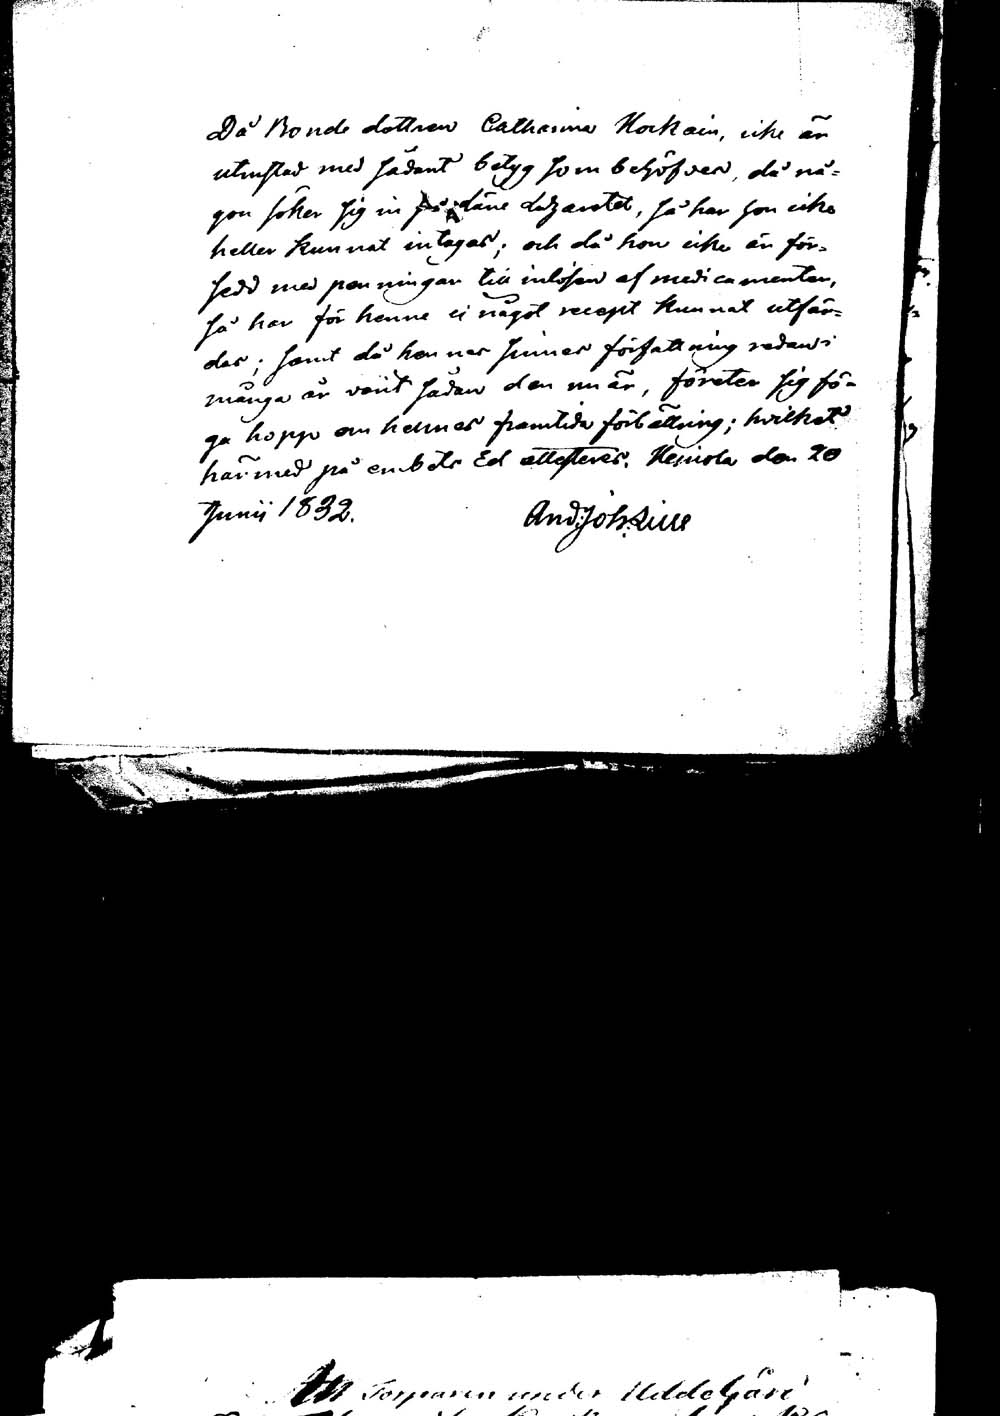 Då Bonde dottren Catharina Korkain, icke är
utrustad med sådant betyg som behöfves, då nå-
gon söker sig in på däre Lazarettet, så har hon icke
heller kunnat intagas; och då hon icke är för-
sedd med penningar till inlösen af medicamenter,
så har för henne ei något recept kunnat utfär-
das; samt då hennes sinnes författning redan i
många år varit sådan den nu är, företer sig fö-
ga hopp om hennes framtida förbättring; hvilket
härmed på embets Ed attesteras. Heinola den 20
Junii 1832.
And: Joh:
Torparen under